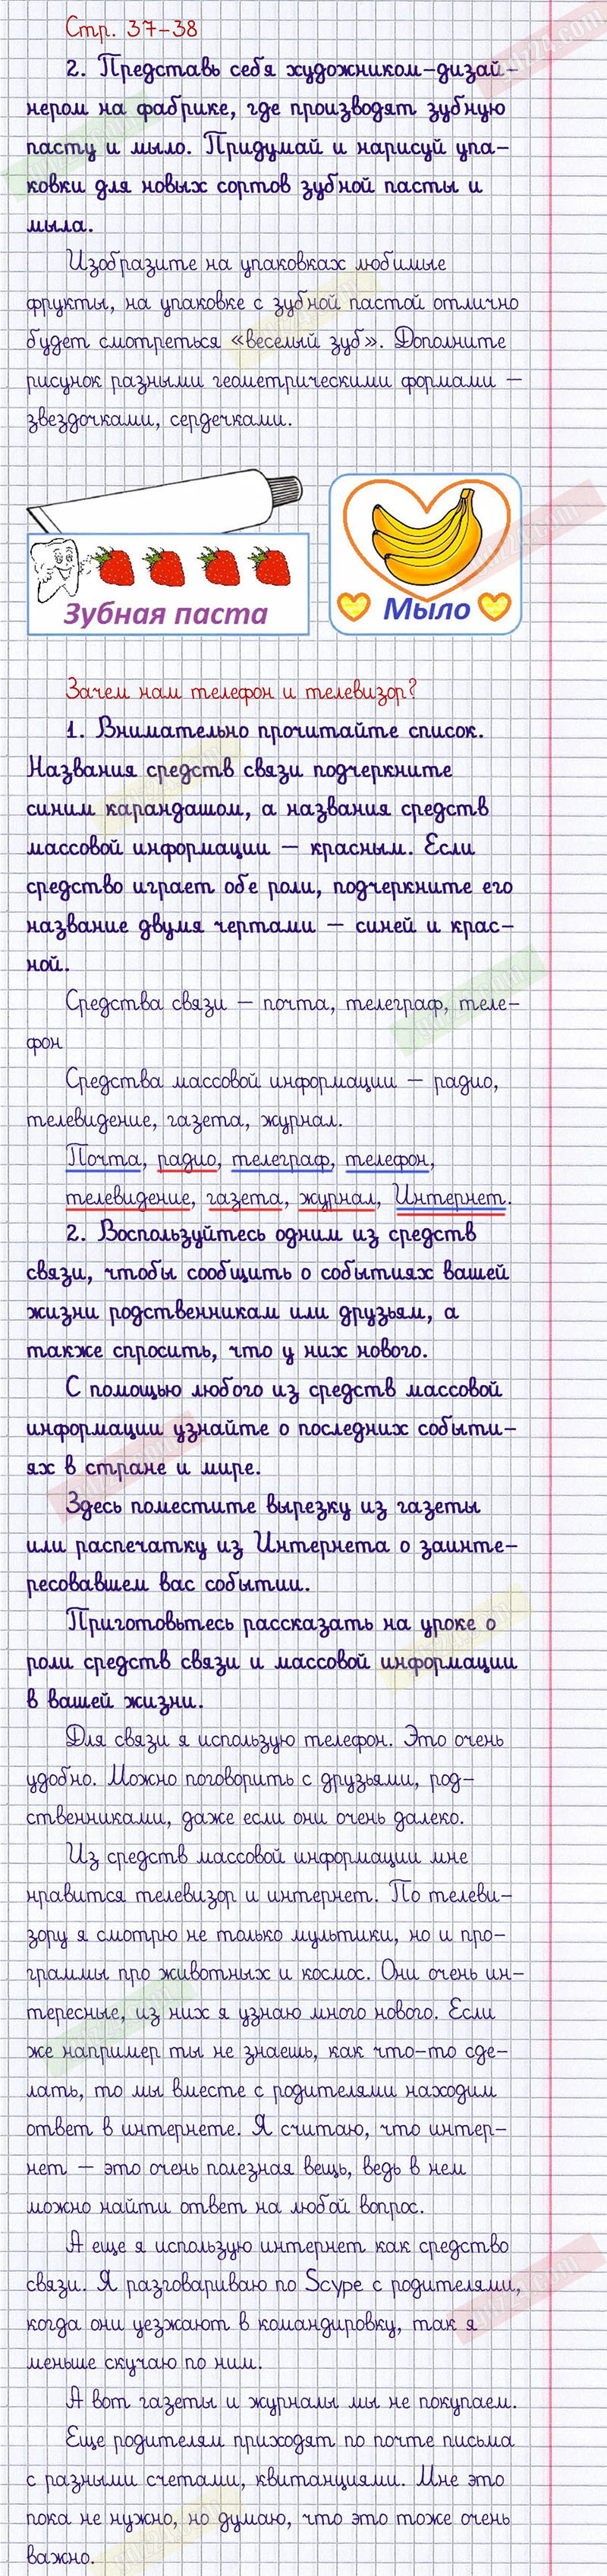 Стр. 37-38
2. Представь себя художником-дизай-
нером на фабрике, где производят зубную
пасту и мыло. Придумай и нарисуй упа-
ковки для новых сортов зубной пасты и
мыла.
Изобразите на упаковках любимые
фрукты, на упаковке с зубной пастой отлично
будет смотреться «веселый зуб». Дополните
рисунок разными геометрическими формами —
звездочками, сердечками.
Зубная паста
Мыло
Зачем нам телефон и телевизор?
1. Внимательно прочитайте список.
Названия средств связи подчеркните
синим карандашом, а названия средств
массовой информации — красным. Если
средство играет обе роли, подчеркните его
название двумя чертами — синей и крас-
ной.
Средства связи — почта, телеграф, теле-
фон
Средства массовой информации — радио,
телевидение, газета, журнал.
Почта, радио, телеграф, телефон,
телевидение, газета, журнал, Интернет.
2. Воспользуйтесь одним из средств
связи, чтобы сообщить о событиях вашей
жизни родственникам или друзьям, а
также спросить, что у них нового.
С помощью любого из средств массовой
информации узнайте о последних событи-
ях в стране и мире.
Здесь поместите вырезку из газеты
или распечатку из Интернета о заинте-
ресовавшем вас событии.
Приготовьтесь рассказать на уроке о
роли средств связи и массовой информации
в вашей жизни.
Для связи я использую телефон. Это очень
удобно. Можно поговорить с друзьями, род-
ственниками, даже если они очень далеко.
Из средств массовой информации мне
нравится телевизор и интернет. По телеви-
зору я смотрю не только мультики, но и про-
граммы про животных и космос. Они очень ин-
тересные, из них я узнаю много нового. Если
же например ты не знаешь, как что-то сде-
лать, то мы вместе с родителями находим
ответ в интернете. Я считаю, что интер-
нет — это очень полезная вещь, ведь в нем
можно найти ответ на любой вопрос.
А еще я использую интернет как средство
связи. Я разговариваю по Scype с родителями,
когда они уезжают в командировку, так я
меньше скучаю по ним.
А вот газеты и журналы мы не покупаем.
Еще родителям приходят по почте письма
с разными счетами, квитанциями. Мне это
пока не нужно, но думаю, что это тоже очень
важно.